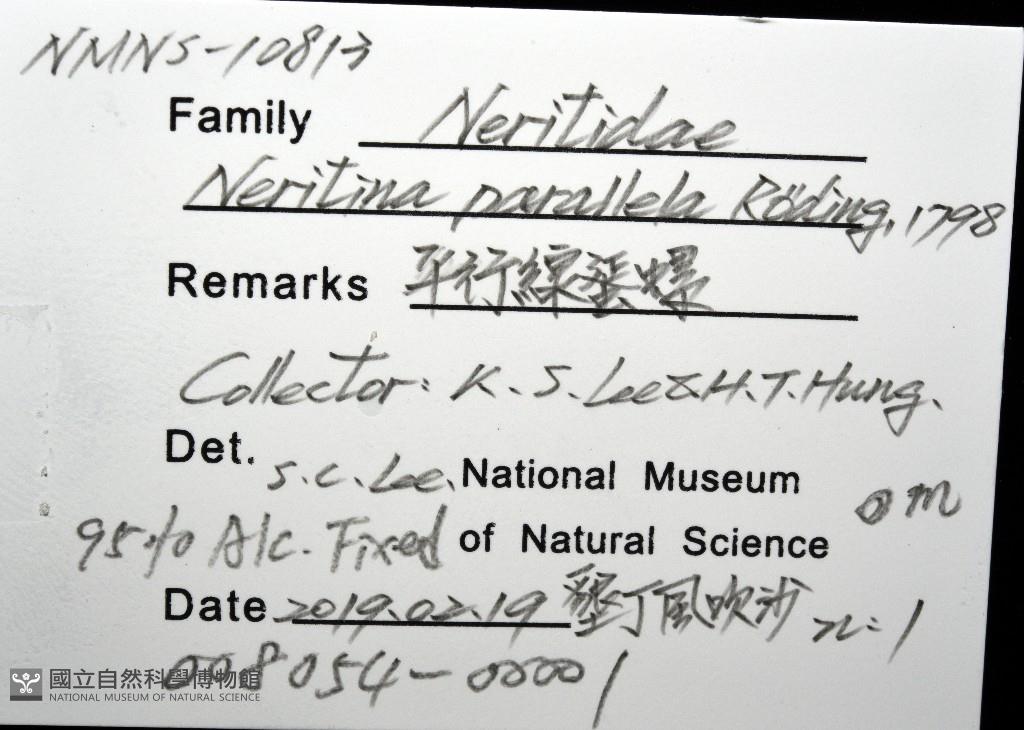 NMNS-10813
Family Neritidae
Neritina parallela Röding, 1798
Remarks 平行線蜑螺
Collector: K. S. Lee & H. T. Hung.
Det. S. C. Lee. National Museum
0 m
95% Alc. Fixed of Natural Science
Date 2019.02.19 墾丁風吹沙 n=1
008054-00001
國立自然科學博物館
NATIONAL MUSEUM OF NATURAL SCIENCE